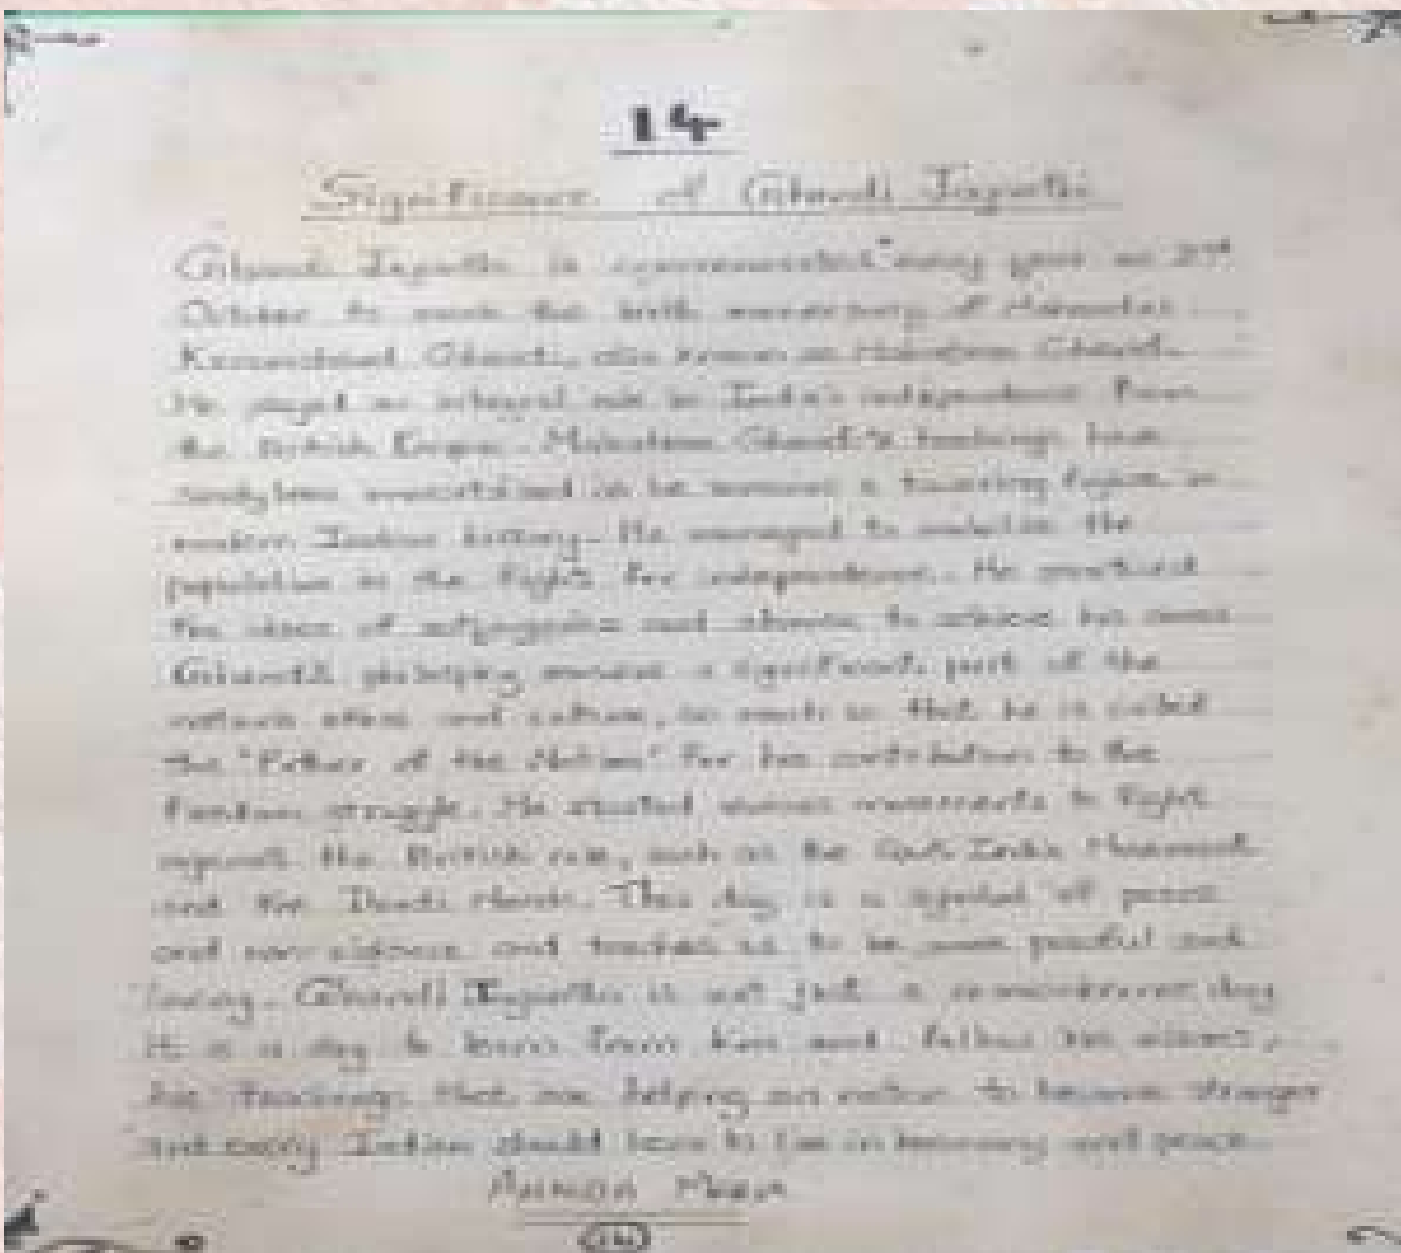 14
Significance of Ghandi Jayanthi
Ghandi Jayanthi is commemorated every year on 2nd
October to mark the birth anniversary of Mohandas
Karamchand Ghandi, also known as Mahatma Ghandi.
He played an integral role in India's independence from
the British Empire. Mahatma Ghandi's teachings have
been as he remains a towering figure in
modern Indian history. He managed to mobilise the
population in the fight for independence. He practiced
the ideas of and ahimsa to achieve his
Ghandi's philosophy remains a significant part of the
nation's ethos and culture, so much so that he is called
the "Father of the Nation" for his contribution to the
freedom struggle. He started various movements to fight
against the British rule, such as the Quit India Movement
and the Dandi March. This day is a symbol of peace
and non-violence and teaches us to be more peaceful and
loving. Ghandi Jayanthi is not just a remembrance day
It is a day to learn from him and follow his
his teachings that are helping our nation to become stronger
and every Indian should learn to live in harmony and peace